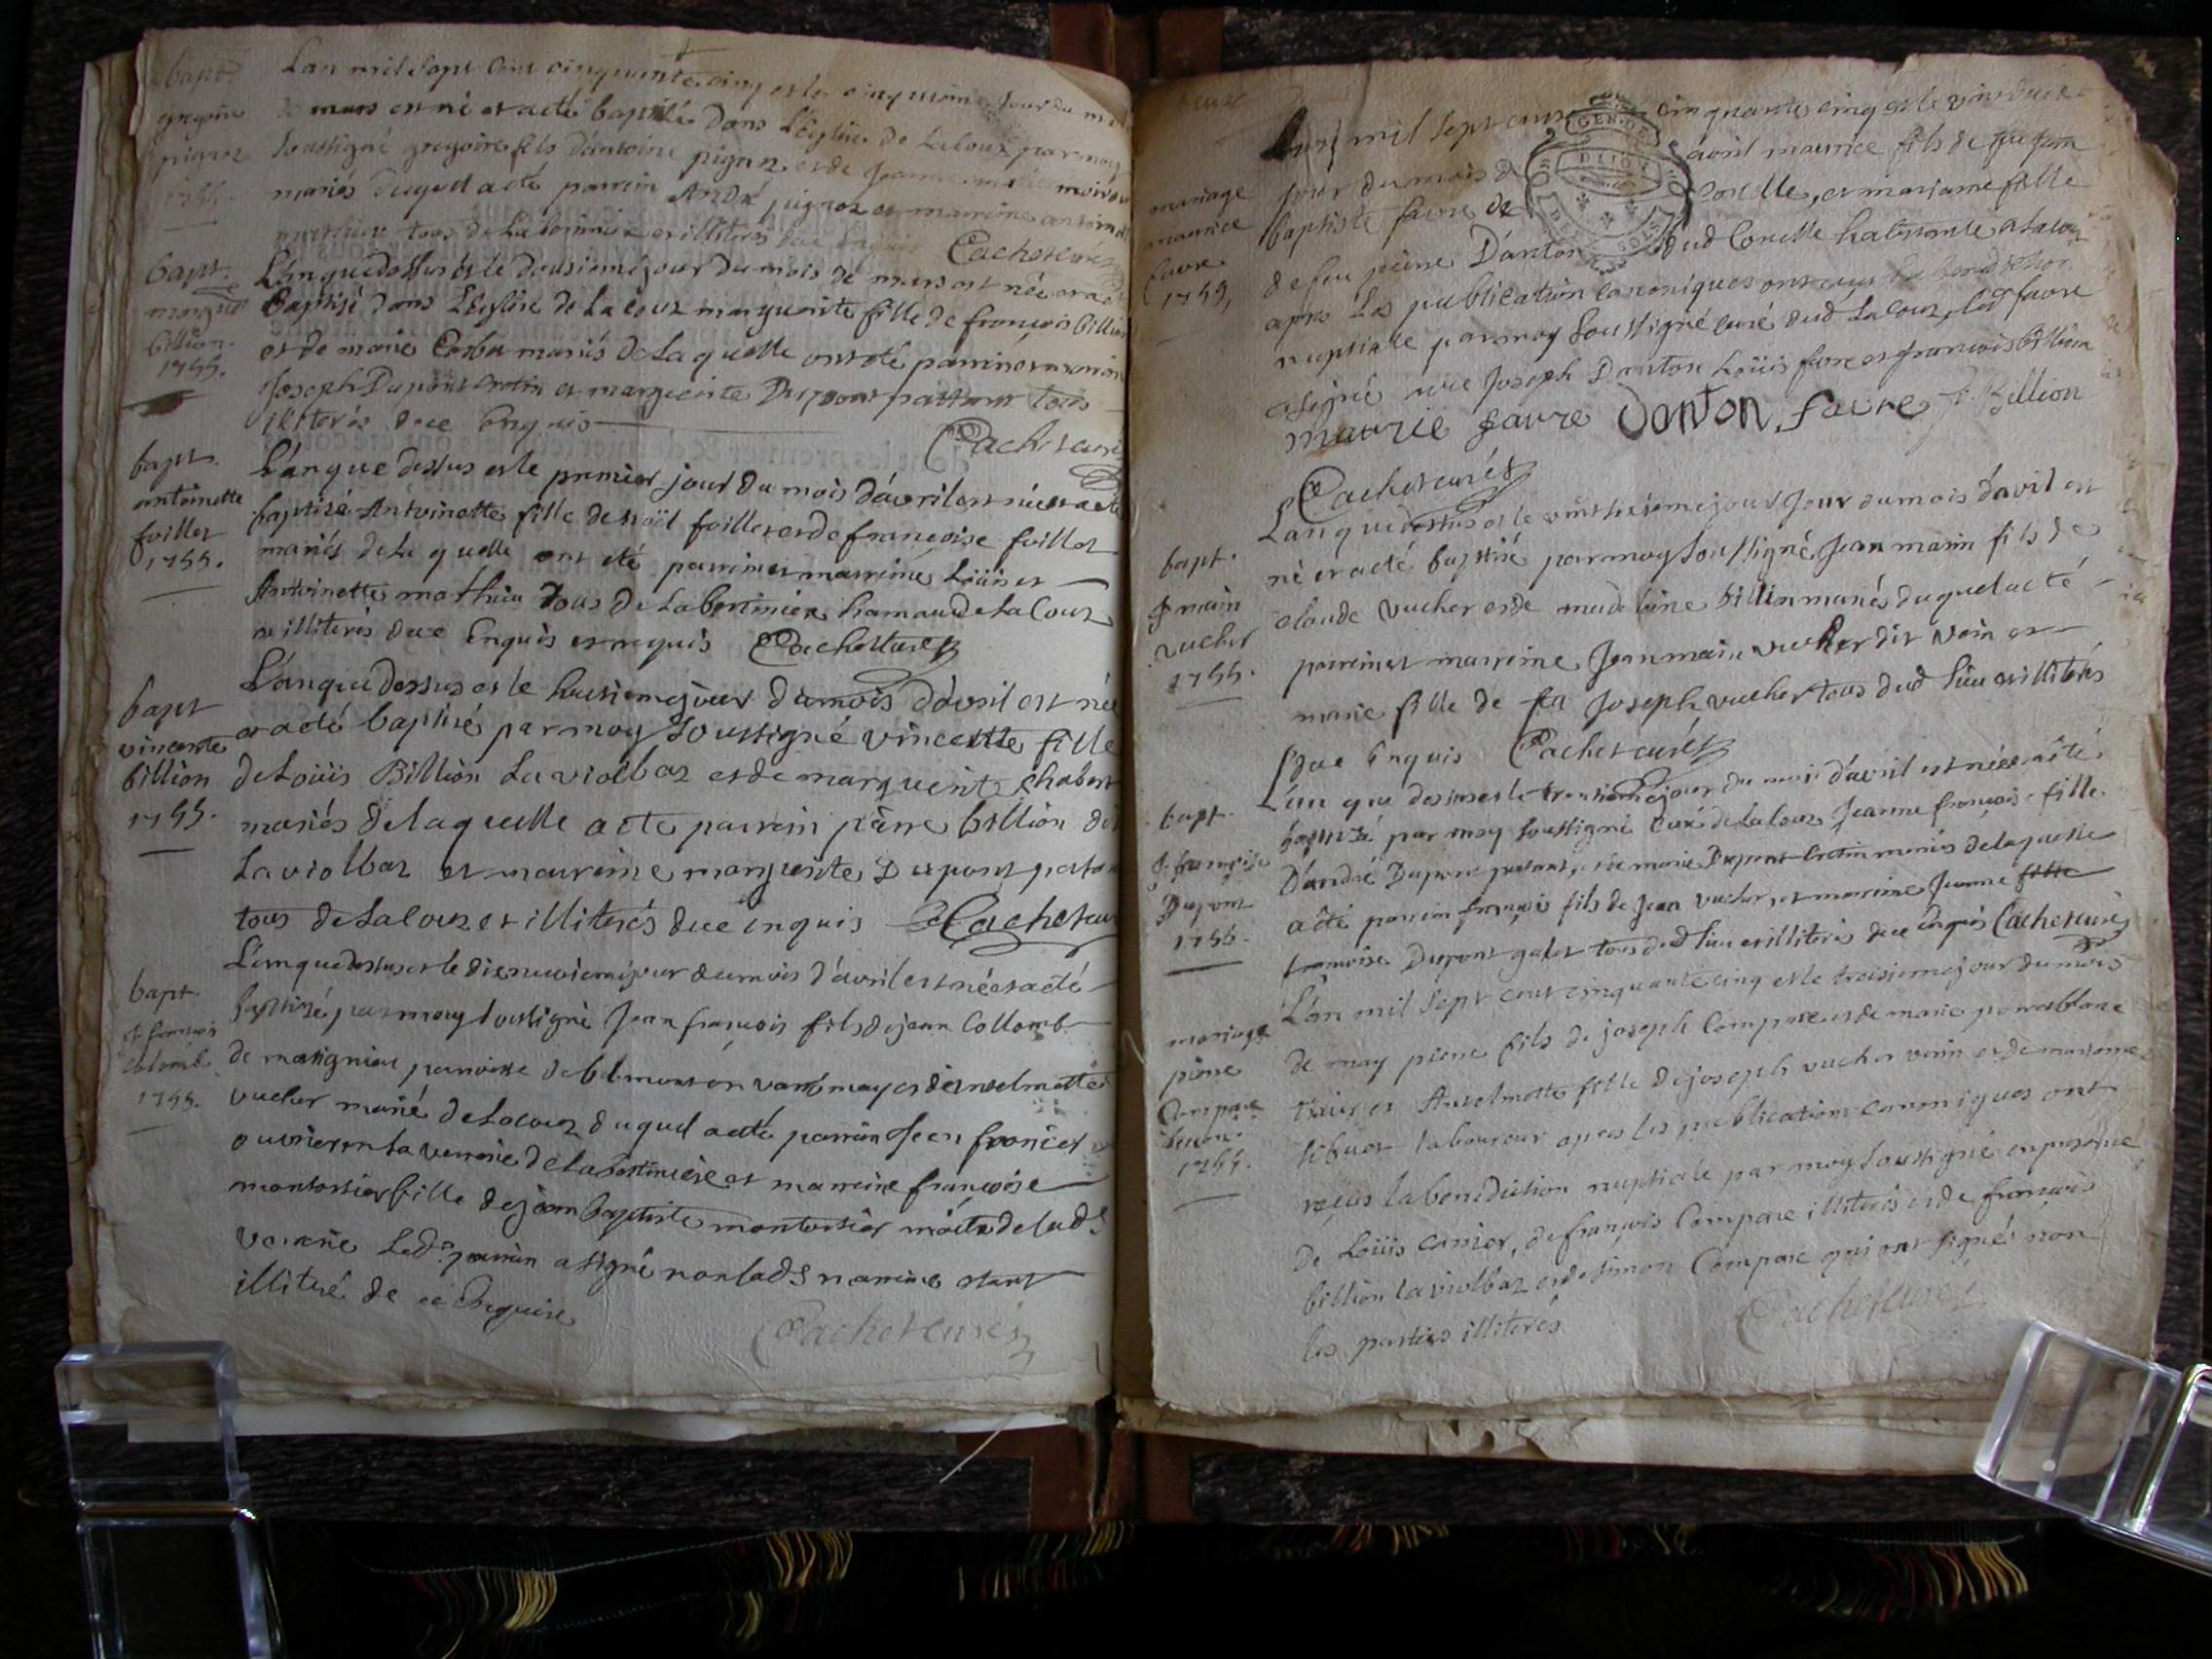 bapt.
gregoire
pignar
1755.
Lan mil sept cent cinquante cinq et le cinquieme jour du
mars est né et a eté baptisé dans l'eglise de Lalouz par moy
soussigné gregoire fils d'antoine pignar et de jeanne
mariés duquel a eté parrein André pignar et marreine
tous de la bertiniere et illiterés de ce enquis Cachet curé
bapt.
margte
billion.
1755.
L'an que dessus et le dousieme jour du mois de mars est née et a eté
baptisé dans L'eglise de Lalouz marguerite fille de francois billion
et de marie Corbu mariés de Laquelle ont eté parrein et marreine
Joseph Dupont Cretin et marguerite Dupont pattant tous
illiterés de ce enquis
Cachet curé
bapt.
antoinette
foillet
1755.
L'an que dessus et le premier jour du mois d'avril est née et a eté
baptisé Antoinette fille de noël foillet et de francoise foillet
mariés de La quelle ont eté parrein et marreine Loüis et
Antoinette mathieu Tous de La bertiniere hamau de La Louz
et illiterés de ce Enquis et requis Cachet curé
bapt
vincente
billion
1755.
L'an que dessus et le huitieme jour du mois d'avril est née
et a eté baptisé par moy Soussigné vincente fille
de Loüis Billion La violbaz et de marguerite chabert
mariés de laquelle a eté parrein piere billion dit
La violbaz et marreine marguerite Dupont
tous de Lalouz et illiterés de ce enquis Cachet curé
bapt.
jt francois
Collomb
1755.
L'an que dessus et le dix neuvieme jour du mois d'avril est né et a eté
baptisé par moy soussigné jean francois fils de jean Collomb
de massignieu parroisse de belmont en varromay et d'anselmette
vucher marié de La Louz duquel a eté parrein jean francois
ouvrier en La verrerie de La bertiniere et marreine francoise
montossier fille de jean baptiste montossier maitre de lade
verrerie Led. parrein a signé non lade marreine etant
illitré de ce Enquise
Cachet curé
mariage
maurice
favre
1755,
L'an mil sept cent cinquante cinq et le vint deux
jour du mois de avril maurice fils de feu jean
baptiste favre de Conelle, et mariane fille
de feu pierre Danton dud Conelle habitante a Lalouz
apres Les publication canoniques ont reçus La benediction
nuptiale par moy soussigné curé dud Lalouz, led favre
a signé avec joseph Danton Loüis favre et francois billion
maurice favre Danton, favre f. Billion
Cachet curé
bapt.
J marin
vucher
1755.
L'an que dessus et le vint huitieme jour Jour du mois d'avril est
né et a eté baptisé par moy soussigné Jean marin fils de
claude vucher et de madeleine billion mariés duquel a eté
parrein et marreine Jean marin vucher dit vein et
marie fille de feu Joseph vucher tous dud lieu et illiterés
de ce Enquis Cachet curé
bapt.
J. francoise
Dupont
1755.
L'an que dessus et le trentieme jour du mois d'avril est née et a eté
baptisé par moy soussigné Curé de La louz, Jeanne francoise fille
d'andré Dupont pattant, et de marie Dupont Cretin mariés de laquelle
a eté parrein francois fils de Jean vucher, et marreine Jeanne fille
francoise Dupont galet tous dud lieu et illiterés de ce enquis Cachet curé
mariage
pierre
Compare
1755.
L'an mil sept cent cinquante cinq et le treisieme jour du mois
de may pierre fils de joseph Compare et de marie
et Anselmette fille de joseph vucher vein et de mariane
laboureur apres les publications canoniques ont
reçus la benediction nuptiale par moy soussigné en presence
de Loüis carrier, de francois Compare illiterés et de francois
billion la violbaz et de simon Compare qui ont signés non
les parties illiterés
Cachet curé